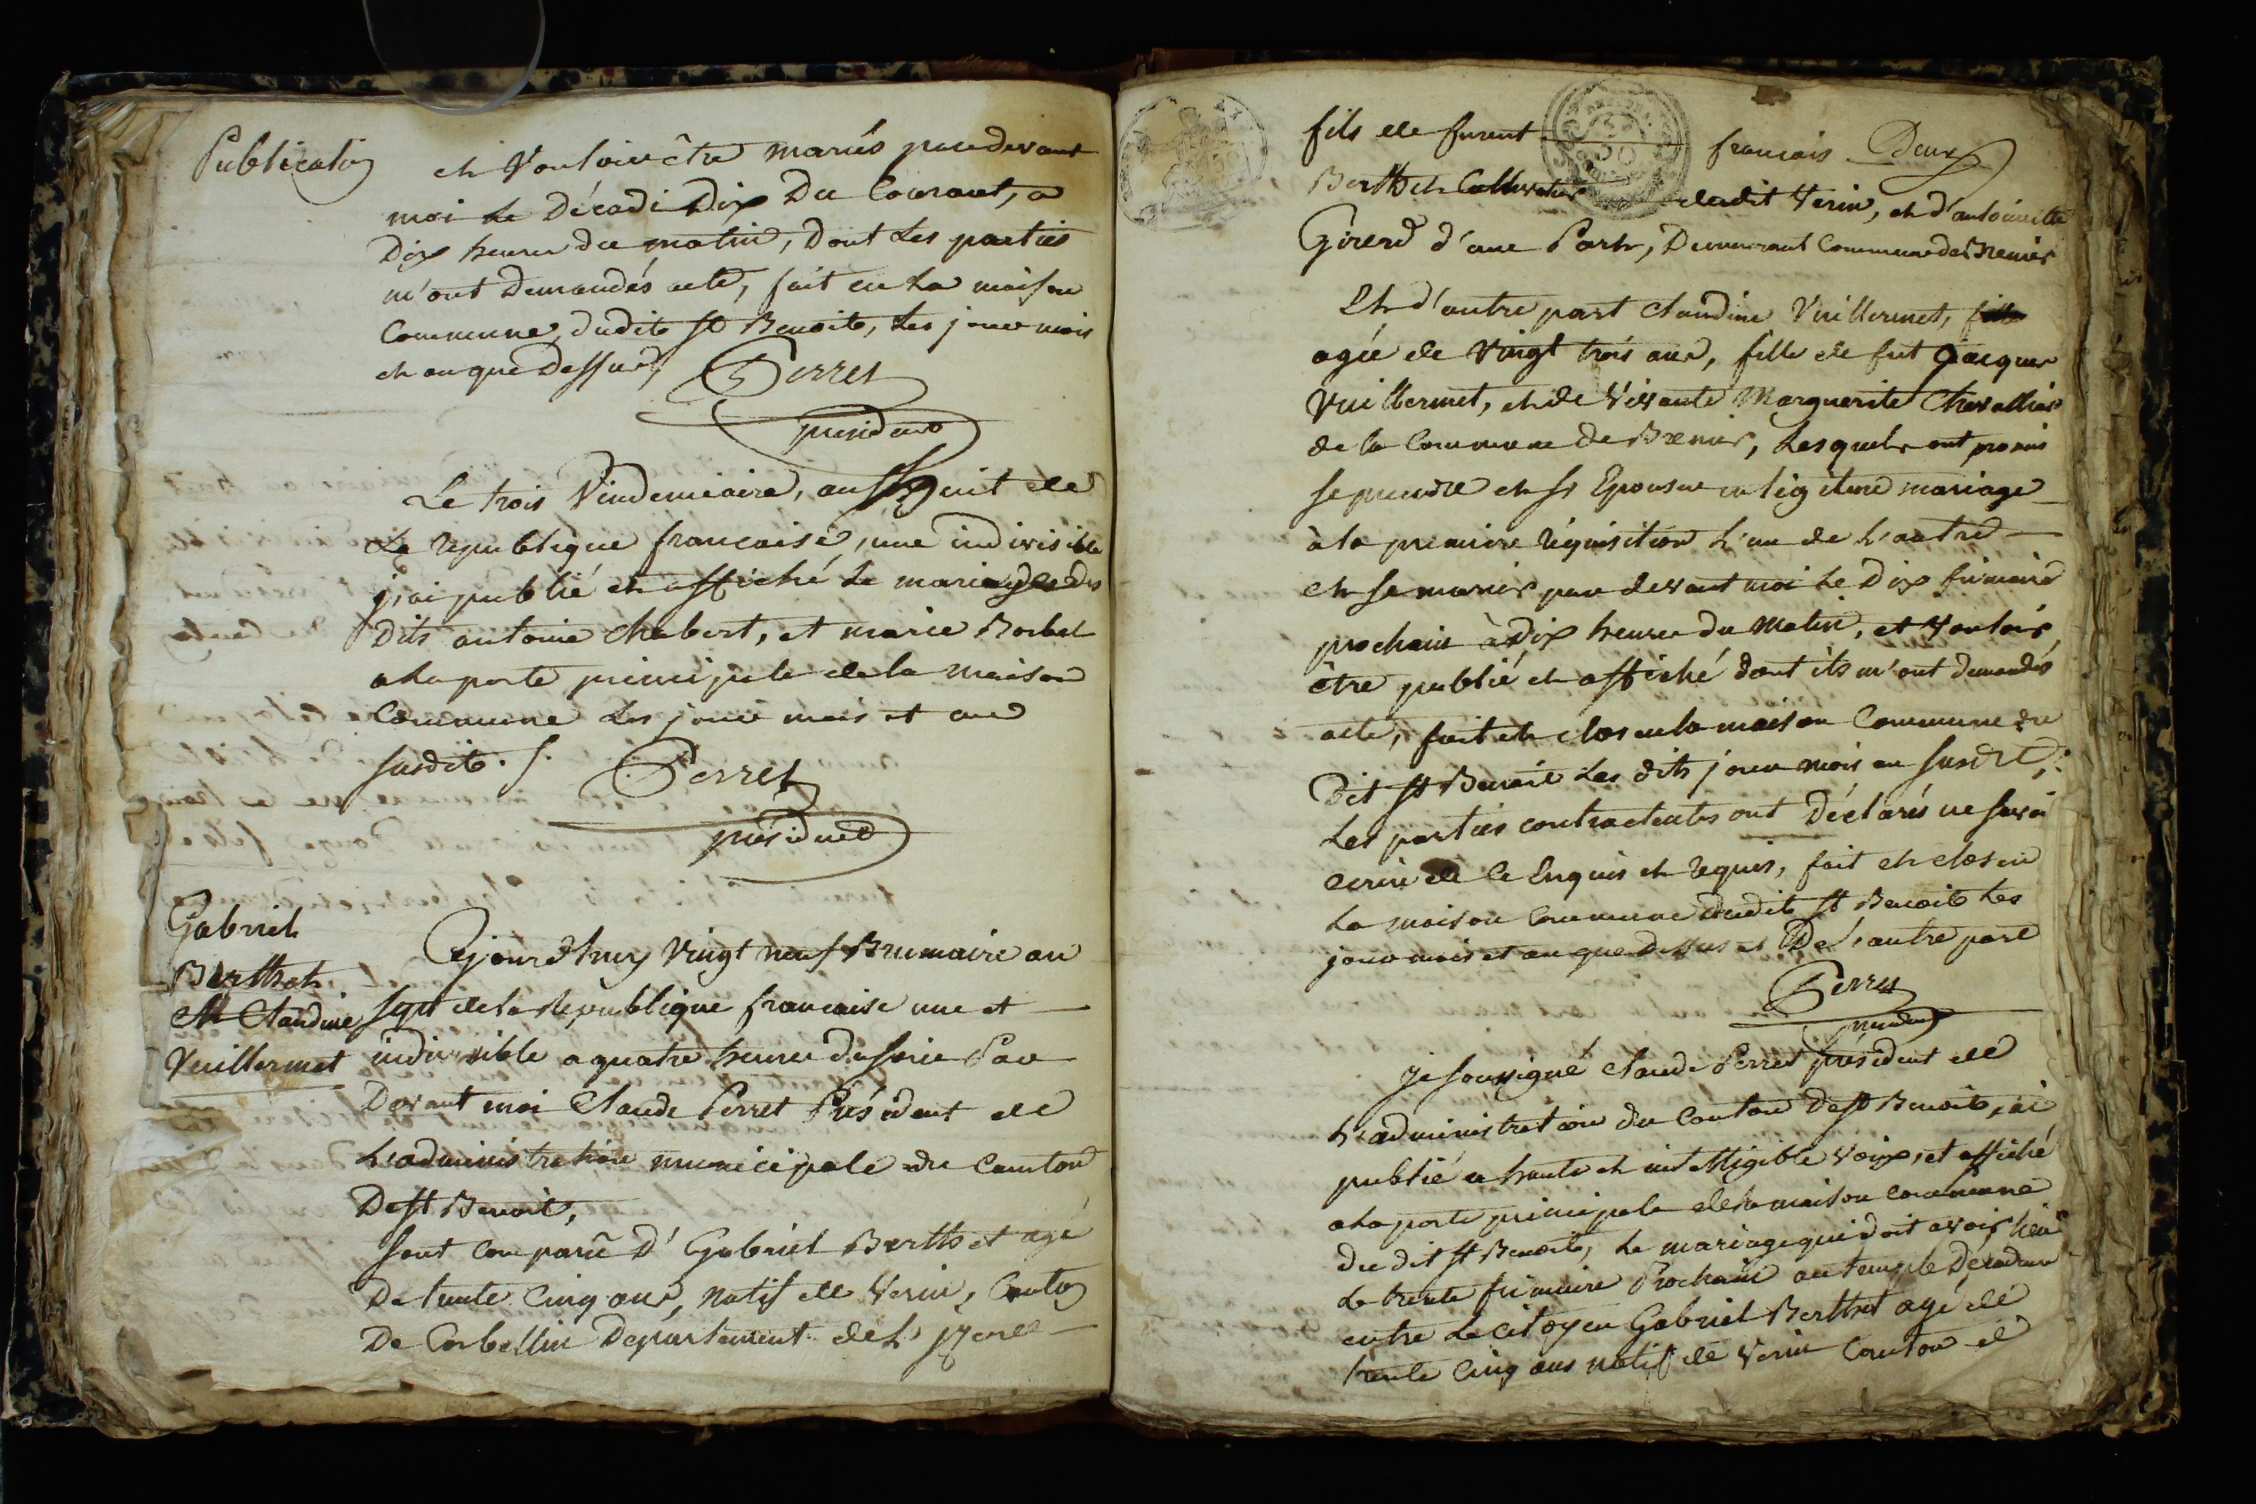 Publication
et Vouloir être mariés pardevant
moi Le Décadi Dix Du Courant, a
Dix heures du matin, Dont Les parties
m'ont Demandés acte, fait en La maison
Commune dudit St Benoite, Les jour mois
et an que Dessus,
Perret
président
Le trois Vindemiaire, an Sept de
La republique francaise, une indivisible
j'ai publié et affiché Le mariage des
Dits antoine Chabert, et marie
a La porte principale de la maison
Commune Les jour mois et an
susdite. /.
Perret
président
Gabriel
Berthet
et Claudine
Vuillermet
Cejourdhuy Vingt neuf Brumaire an
sept de la Republique francaise une et
indivisible a quatre heures du soir Par
Devant moi Claude Perret Président de
L'administration municipale du Canton
De St Benoit,
sont comparû D' Gabriel Berthet agé
De trente Cinq ans, Natif de Verin, Canton
De Corbellin Departement de L'
fils de furent francois
Berthet Cultivateur dudit Verin, et d'antoinette
Girerd d'une Part, Demeurant Commune de Bremier
Et d'autre part Claudine Vuillermet, fille
agée de Vingt trois ans, fille de fut Jacques
Vuillermet, et de Vivante Marguerite Chevallier
de la Commune De Bremier, Lesquels ont promis
se prendre et s'Epouser en legitime mariage
à la premiere réquisition L'un de L'autre
et se marier par devant moi Le Dix frimaire
prochain à Dix heures du Matin, et Vouloir
être publié et affiché dont ils m'ont demandés
acte, fait et clos en la maison Commune du
Dit St Benoit Les dits jour mois an susdit,
Les parties contractantes ont Déclarés ne savoir
ecrire de ce Enquis et requis, fait et clos en
La maison Commune dudit St Benoite Les
jour mois et an que dessus et De L'autre part
Perret
président
Je soussigné Claude Perret président de
L'administration du Canton De St Benoite, ai
publié a haute et intelligible Voix, et affiché
a La porte principale de la maison Commune
du dit St Benoite, Le mariage qui doit avoir lieu
Le trente frimaire Prochain au temple Décadaire
entre Le citoyen Gabriel Berthet agé de
trente Cinq ans natif de Verin Canton de